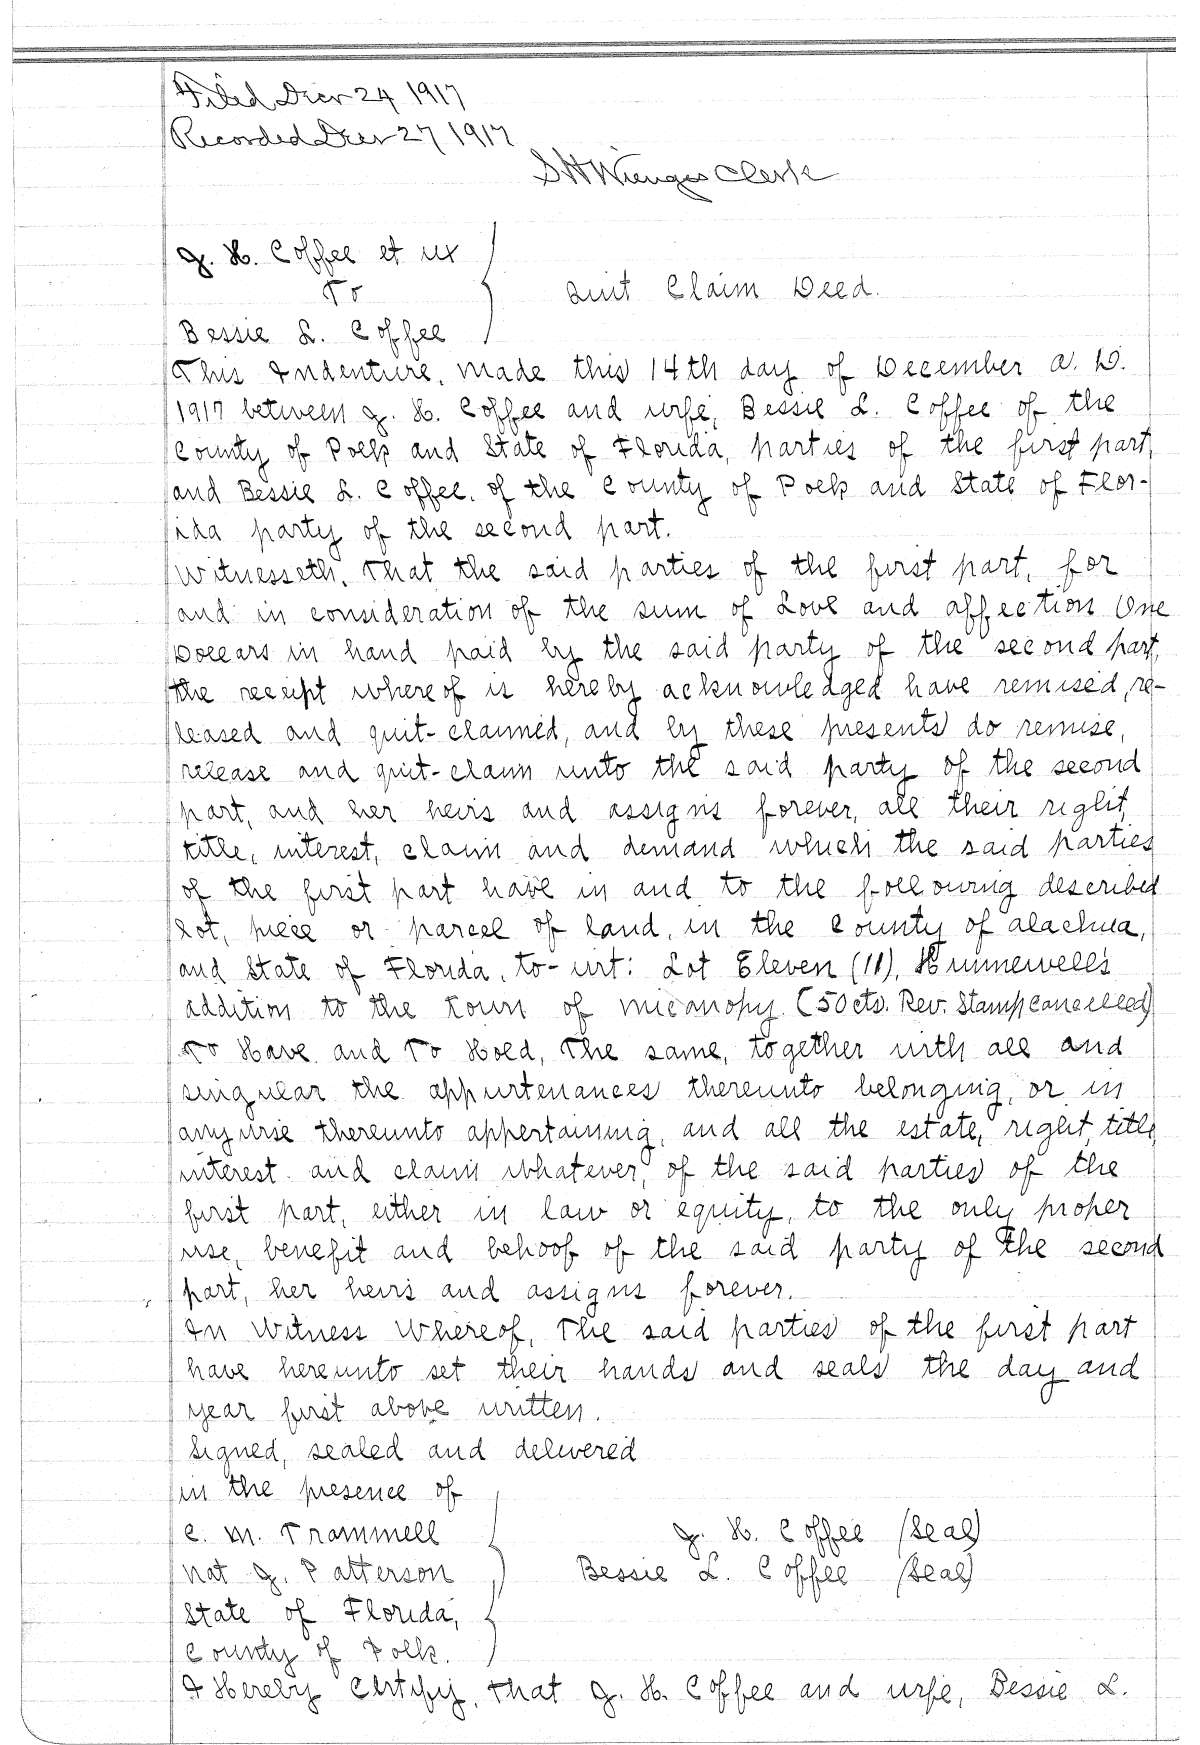 Filed Decr 24 1917
Recorded Decr 27 1917
S H Wienges Clerk
J. H. Coffee et ux
To
Quit Claim Deed.
Bessie L. Coffee
This Indenture, made this 14th day of December A. D.
1917 between J. H. Coffee and wife, Bessie L. Coffee of the
County of Polk and State of Florida, parties of the first part,
and Bessie L. Coffee, of the County of Polk and State of Flor-
ida party of the second part.
Witnesseth, That the said parties of the first part, for
and in consideration of the sum of Love and affection One
Dollars in hand paid by the said party of the second part,
the receipt whereof is hereby acknowledged have remised, re-
leased and quit-claimed, and by these presents do remise,
release and quit-claim unto the said party of the second
part, and her heirs and assigns forever, all their right,
title, interest, claim and demand which the said parties
of the first part have in and to the following described
lot, piece or parcel of land, in the County of Alachua,
and State of Florida, to-wit: Lot Eleven (11), Hunnewell's
addition to the town of Micanopy. (50cts. Rev. Stamp cancelled)
To Have and To Hold, The same, together with all and
singular the appurtenances thereunto belonging, or in
anywise thereunto appertaining, and all the estate, right, title,
interest and claim whatever, of the said parties of the
first part, either in law or equity, to the only proper
use, benefit and behoof of the said party of the second
part, her heirs and assigns forever.
In Witness Whereof, The said parties of the first part
have hereunto set their hands and seals the day and
year first above written.
Signed, sealed and delivered
in the presence of
C. M. Trammell J. H. Coffee (Seal)
Nat J. Patterson Bessie L. Coffee (Seal)
State of Florida,
County of Polk.
I Hereby Certify, That J. H. Coffee and wife, Bessie L.